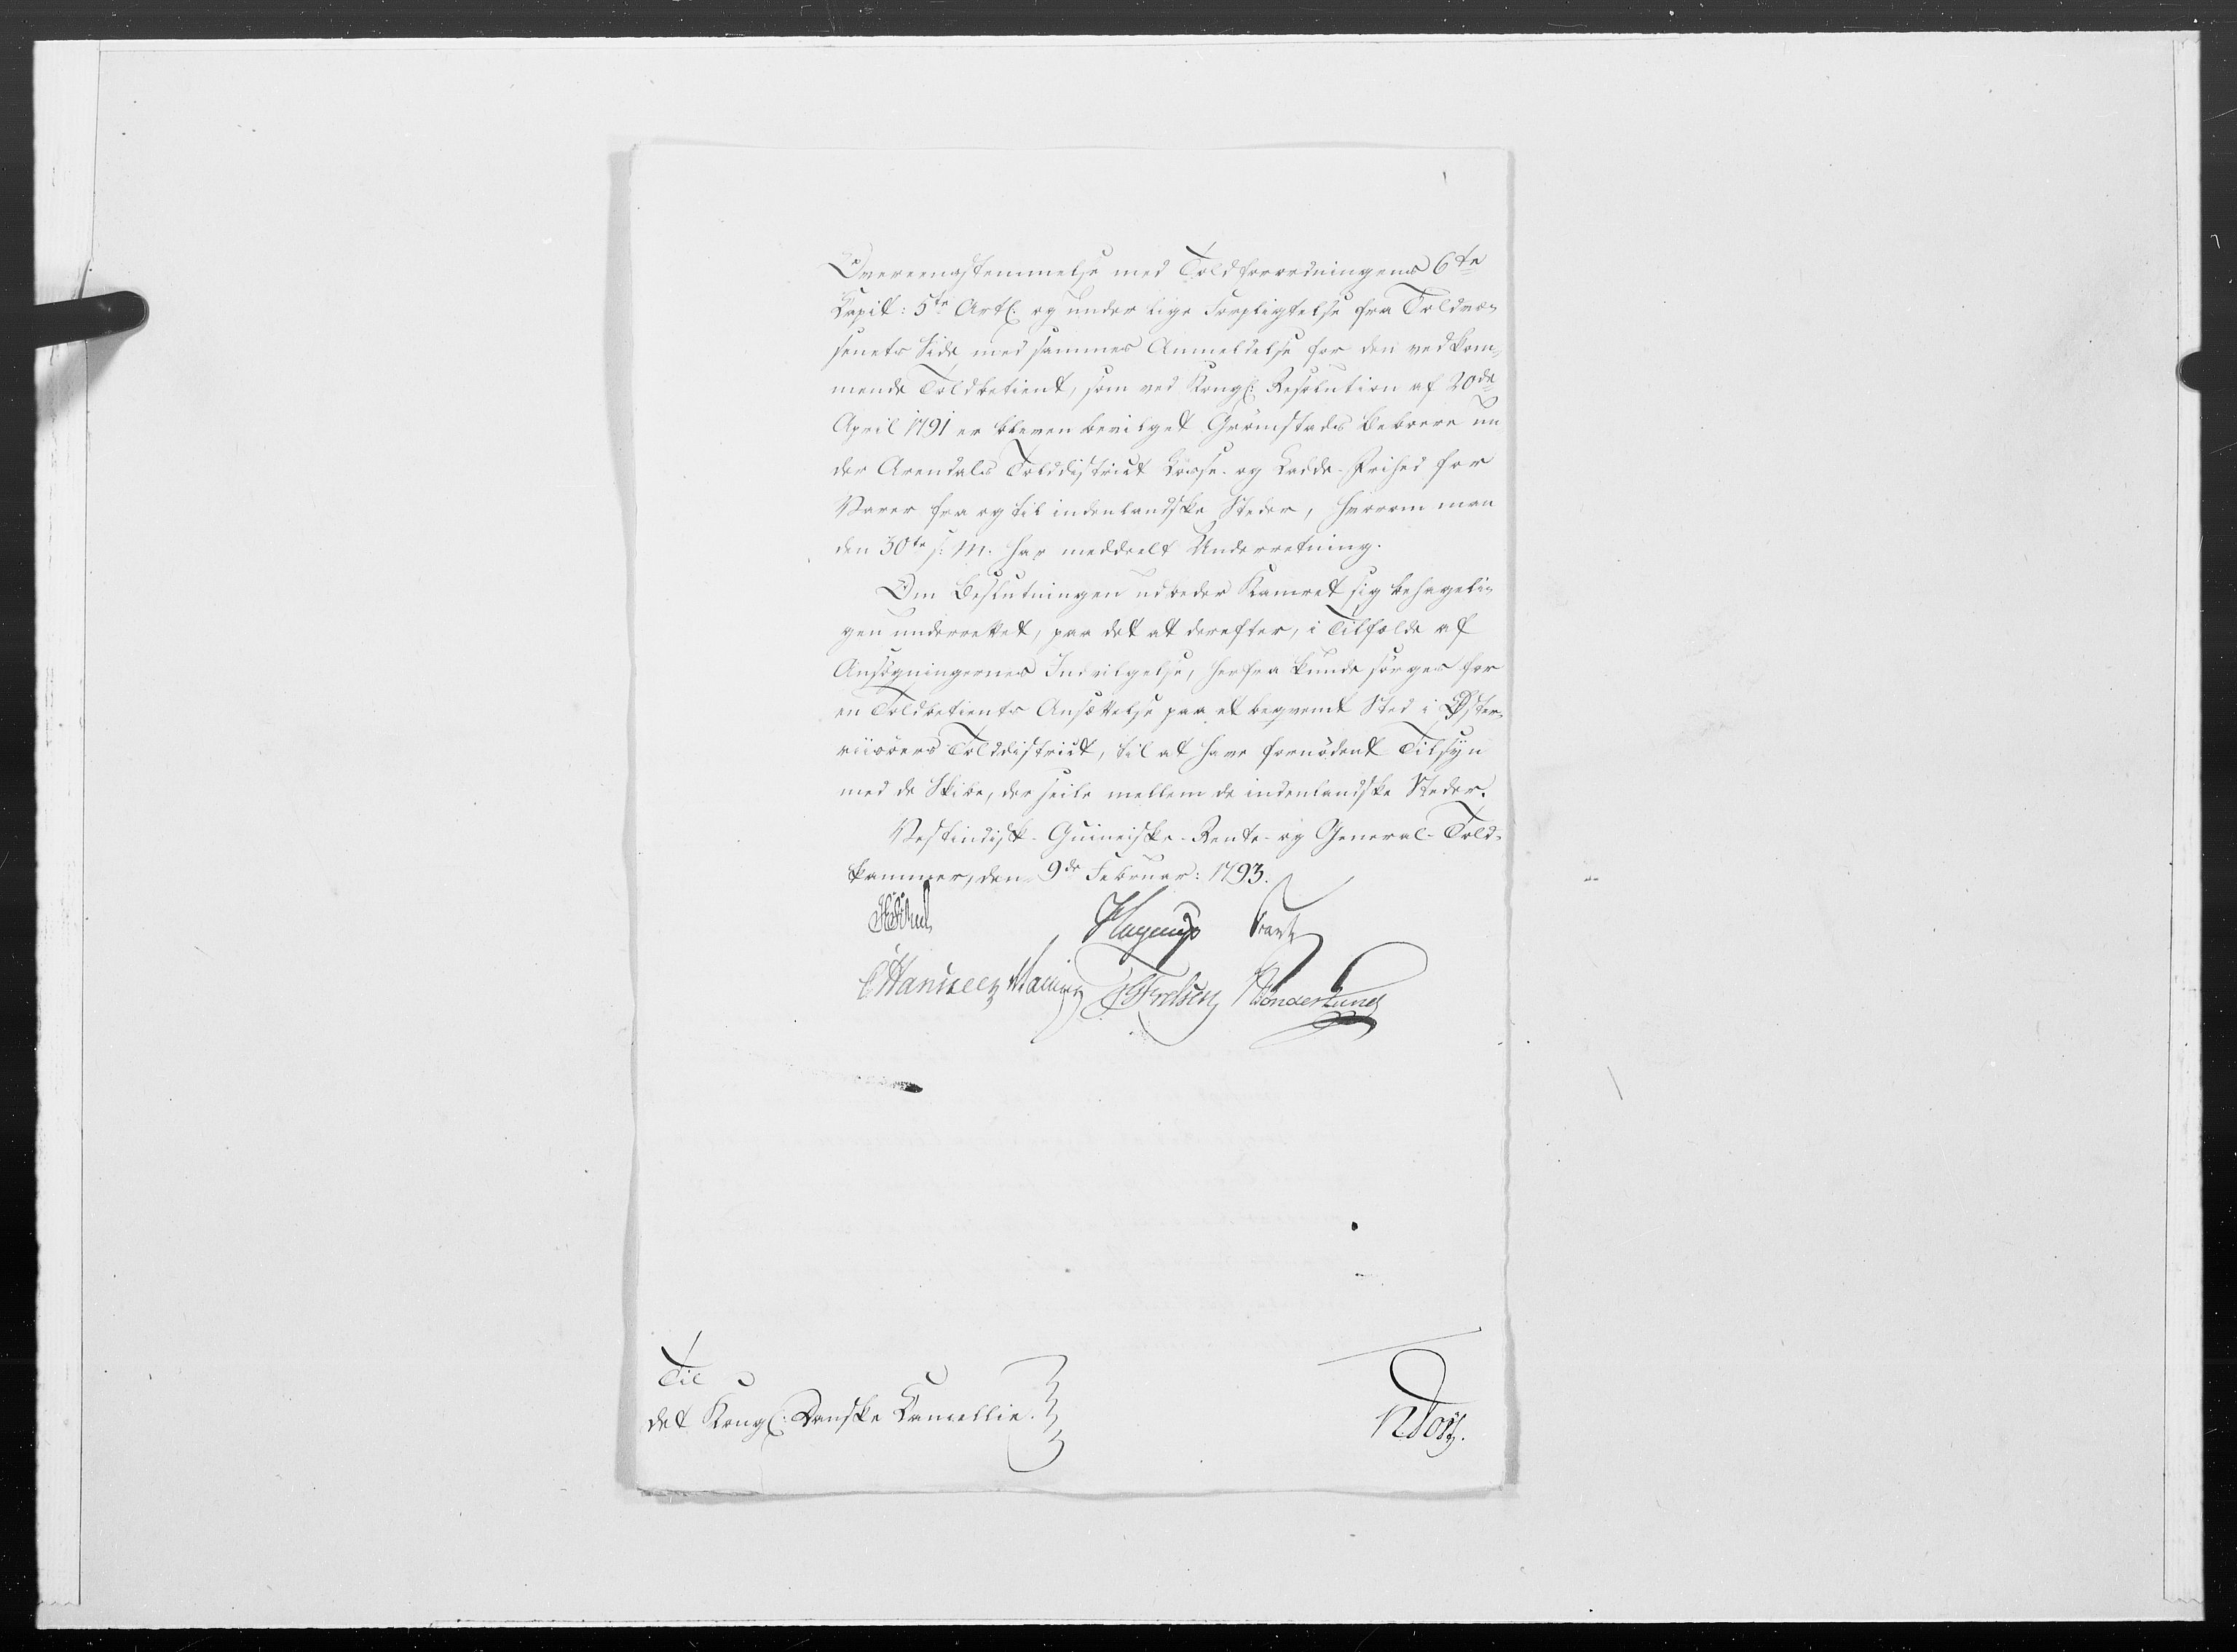 Overeensstemmelse med Toldforordningens 6te
Capit: 5te Artl. og under lige Forpligtelse fra Toldvæ-
senets Side med sammes Anmeldelse for den vedkom-
mende Toldbetient, som ved Kongl: Resolution af 20de
April 1791 er bleven bevilget Grømstads Beboere un
der Arendals Tolddistrict Losse- og Ladde-Frihed for
Varer fra og til indenlandske Steder, hvorom man
den 30te s: M. har meddeelt Underretning.
Om Beslutningen udbeder Kamret sig behageli-
gen underrettet, paa det at derefter, i Tilfælde af
Ansøgningernes Indvilgelse, herfra kunde sørges for
en Toldbetients Ansættelse paa et beqvemt Sted i Øster-
riisöers Tolddistrict, til at have fornødent Tilsyn
med de Skibe, der seile mellem de indenlandske Steder.
Vestindisk- Guineiske- Rente- og General-Told-
kammer, den 9de Februar: 1793.
Hagerup
Sönderlund
Til
det Kongl: Danske Cancellie.